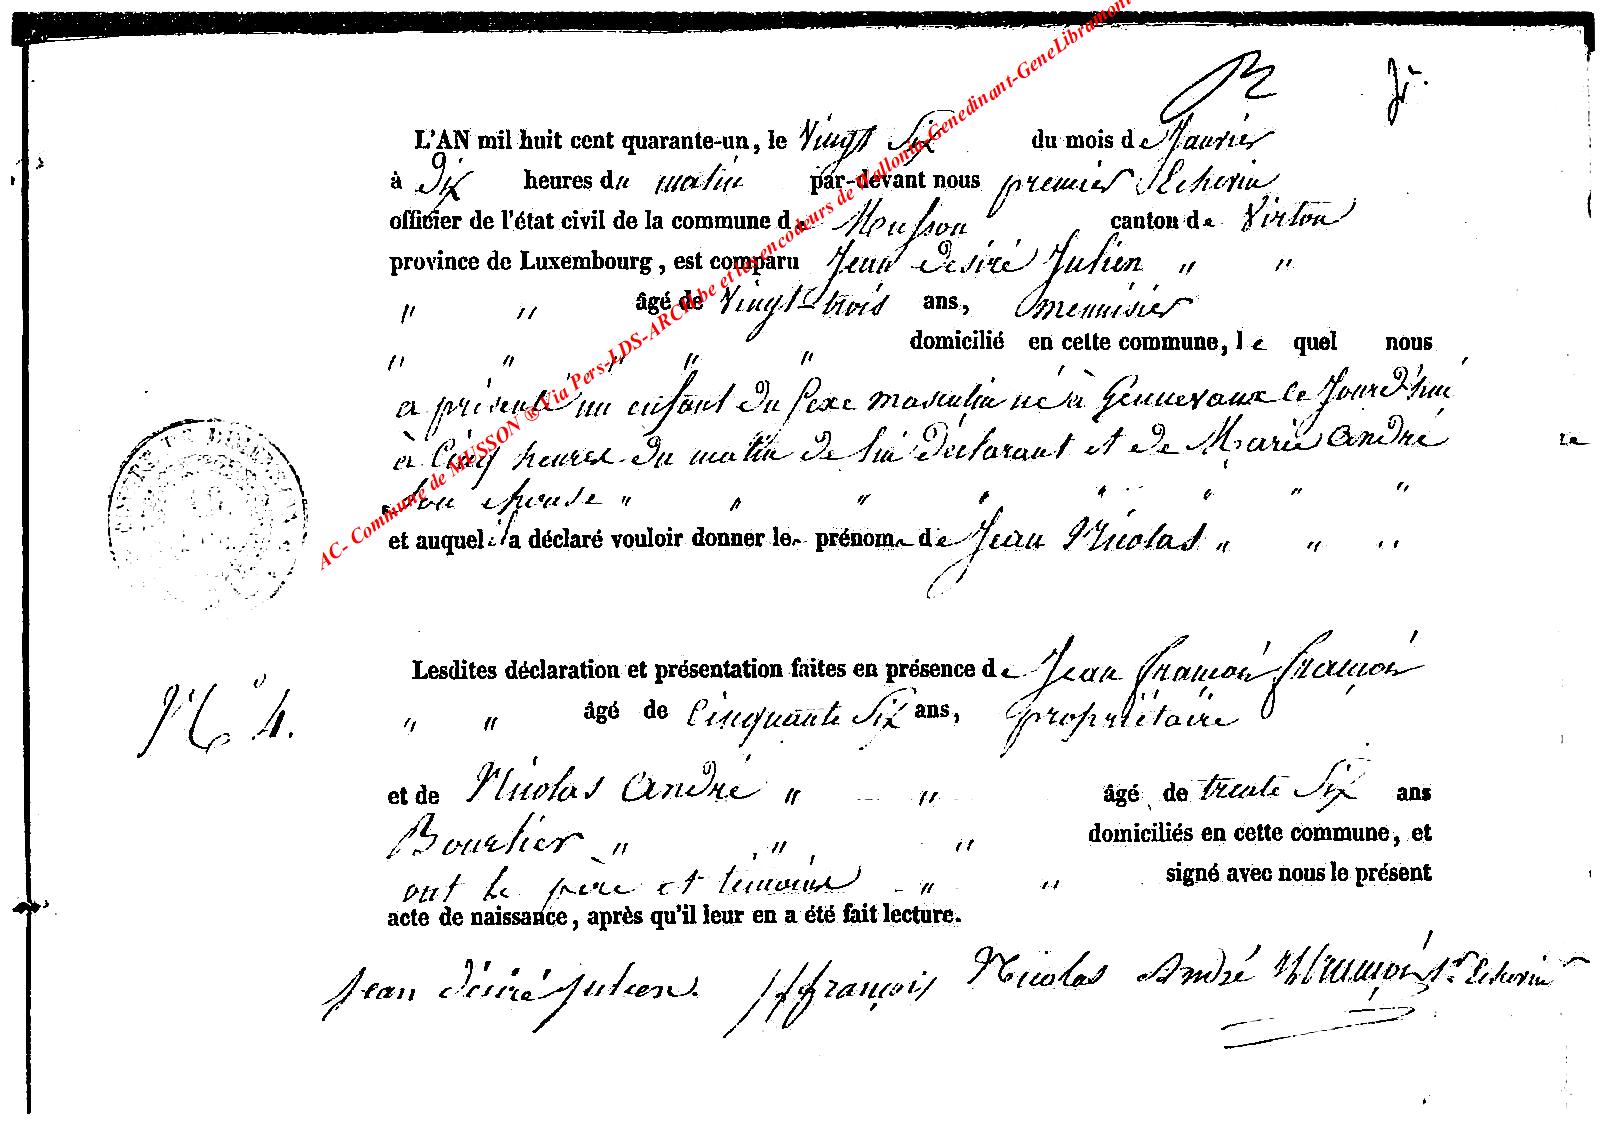 L'AN mil huit cent quarante-un, le Vingt Six du mois de Janvier
à Dix heures du matin par-devant nous premier Echevin
officier de l'état civil de la commune de Musson canton de Virton
province de Luxembourg, est comparu Jean Désiré Julien " "
" " âgé de Vingt-trois ans, menuisier
" " " " " domicilié en cette commune, le quel nous
a présenté un enfant du sexe masculin né à Gennevaux ce Jourd'hui
à Cinq heures du matin de lui déclarant et de Marie André
son épouse " " " " " " " "
et auquel il a déclaré vouloir donner le prénom de Jean Nicolas " " "
Lesdites déclaration et présentation faites en présence de Jean françois françois
" " âgé de Cinquante Six ans, propriétaire
No 4.
et de Nicolas André " " âgé de trente Six ans
" " " domiciliés en cette commune, et
ont le père et témoins " " signé avec nous le présent
acte de naissance, après qu'il leur en a été fait lecture.
Jean désiré Julien. JffrançoiS Nicolas André françois 1er Echevin
AC- Commune de MUSSON ® Via Pers-LDS-ARCH.be et les encodeurs de Wallonia-Genedinant-GeneLibramont